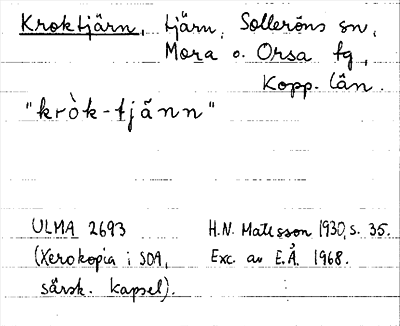 Kroktjärn, tjärn, Solleröns sn,
Mora o. Orsa tg,
Kopp. län.
"kròk-tjä̆nn"
ULMA 2693 H.N. Matsson 1930, s. 35.
(Xerokopia i SOA, Exc. av E.Å. 1968.
särsk. kapsel).